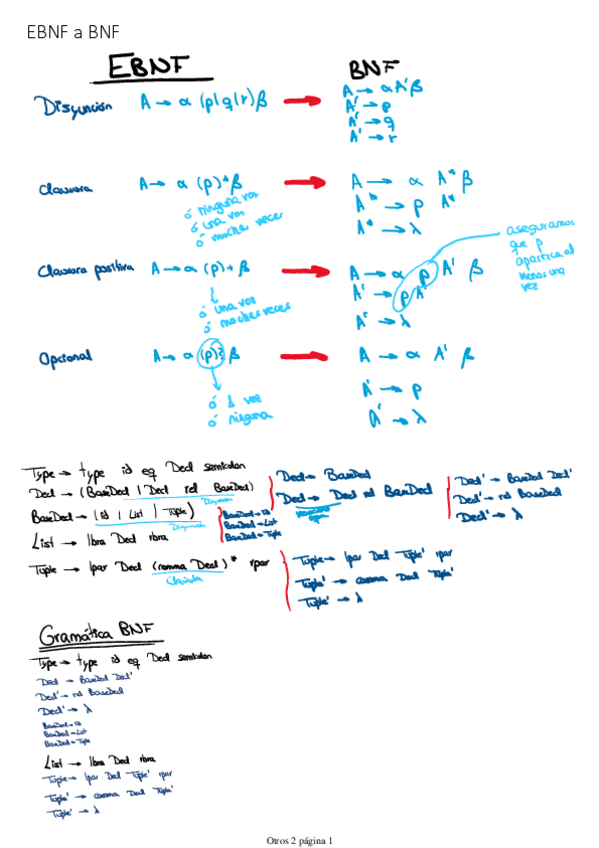 EBNF a BNF
EBNF
BNF
Disyunción A → α (p|q|r)β
A → α A' β
A' → p
A' → q
A' → r
Clausura A → α (p)* β
ó ninguna vez
ó una vez
ó muchas veces
A → α A* β
A* → p A*
A* → λ
Clausura positiva A → α (p)+ β
ó una vez
ó muchas veces
A → α p A' β
A' → p A'
A' → λ
aseguramos
que p
aparezca al
menos una
vez
Opcional A → α (p)? β
ó 1 vez
ó ninguna
A → α A' β
A' → p
A' → λ
Type → type id eq Decl semicolon
Decl → (BaseDecl | Decl rel BaseDecl)
Disyunción
BaseDecl → (id | List | Tuple)
Disyunción
List → lbra Decl rbra
Tuple → lpar Decl (comma Decl)* rpar
Clausula
Decl → BaseDecl
Decl → Decl rel BaseDecl
BaseDecl → id
BaseDecl → List
BaseDecl → Tuple
Decl' → rel BaseDecl
Decl' → λ
Tuple → lpar Decl Tuple' rpar
Tuple' → comma Decl Tuple'
Tuple' → λ
Gramática BNF
Type → type id eq Decl semicolon
Decl → BaseDecl Decl'
Decl' → rel BaseDecl
Decl' → λ
BaseDecl → id
BaseDecl → List
BaseDecl → Tuple
List → lbra Decl rbra
Tuple → lpar Decl Tuple' rpar
Tuple' → comma Decl Tuple'
Tuple' → λ
Otros 2 página 1